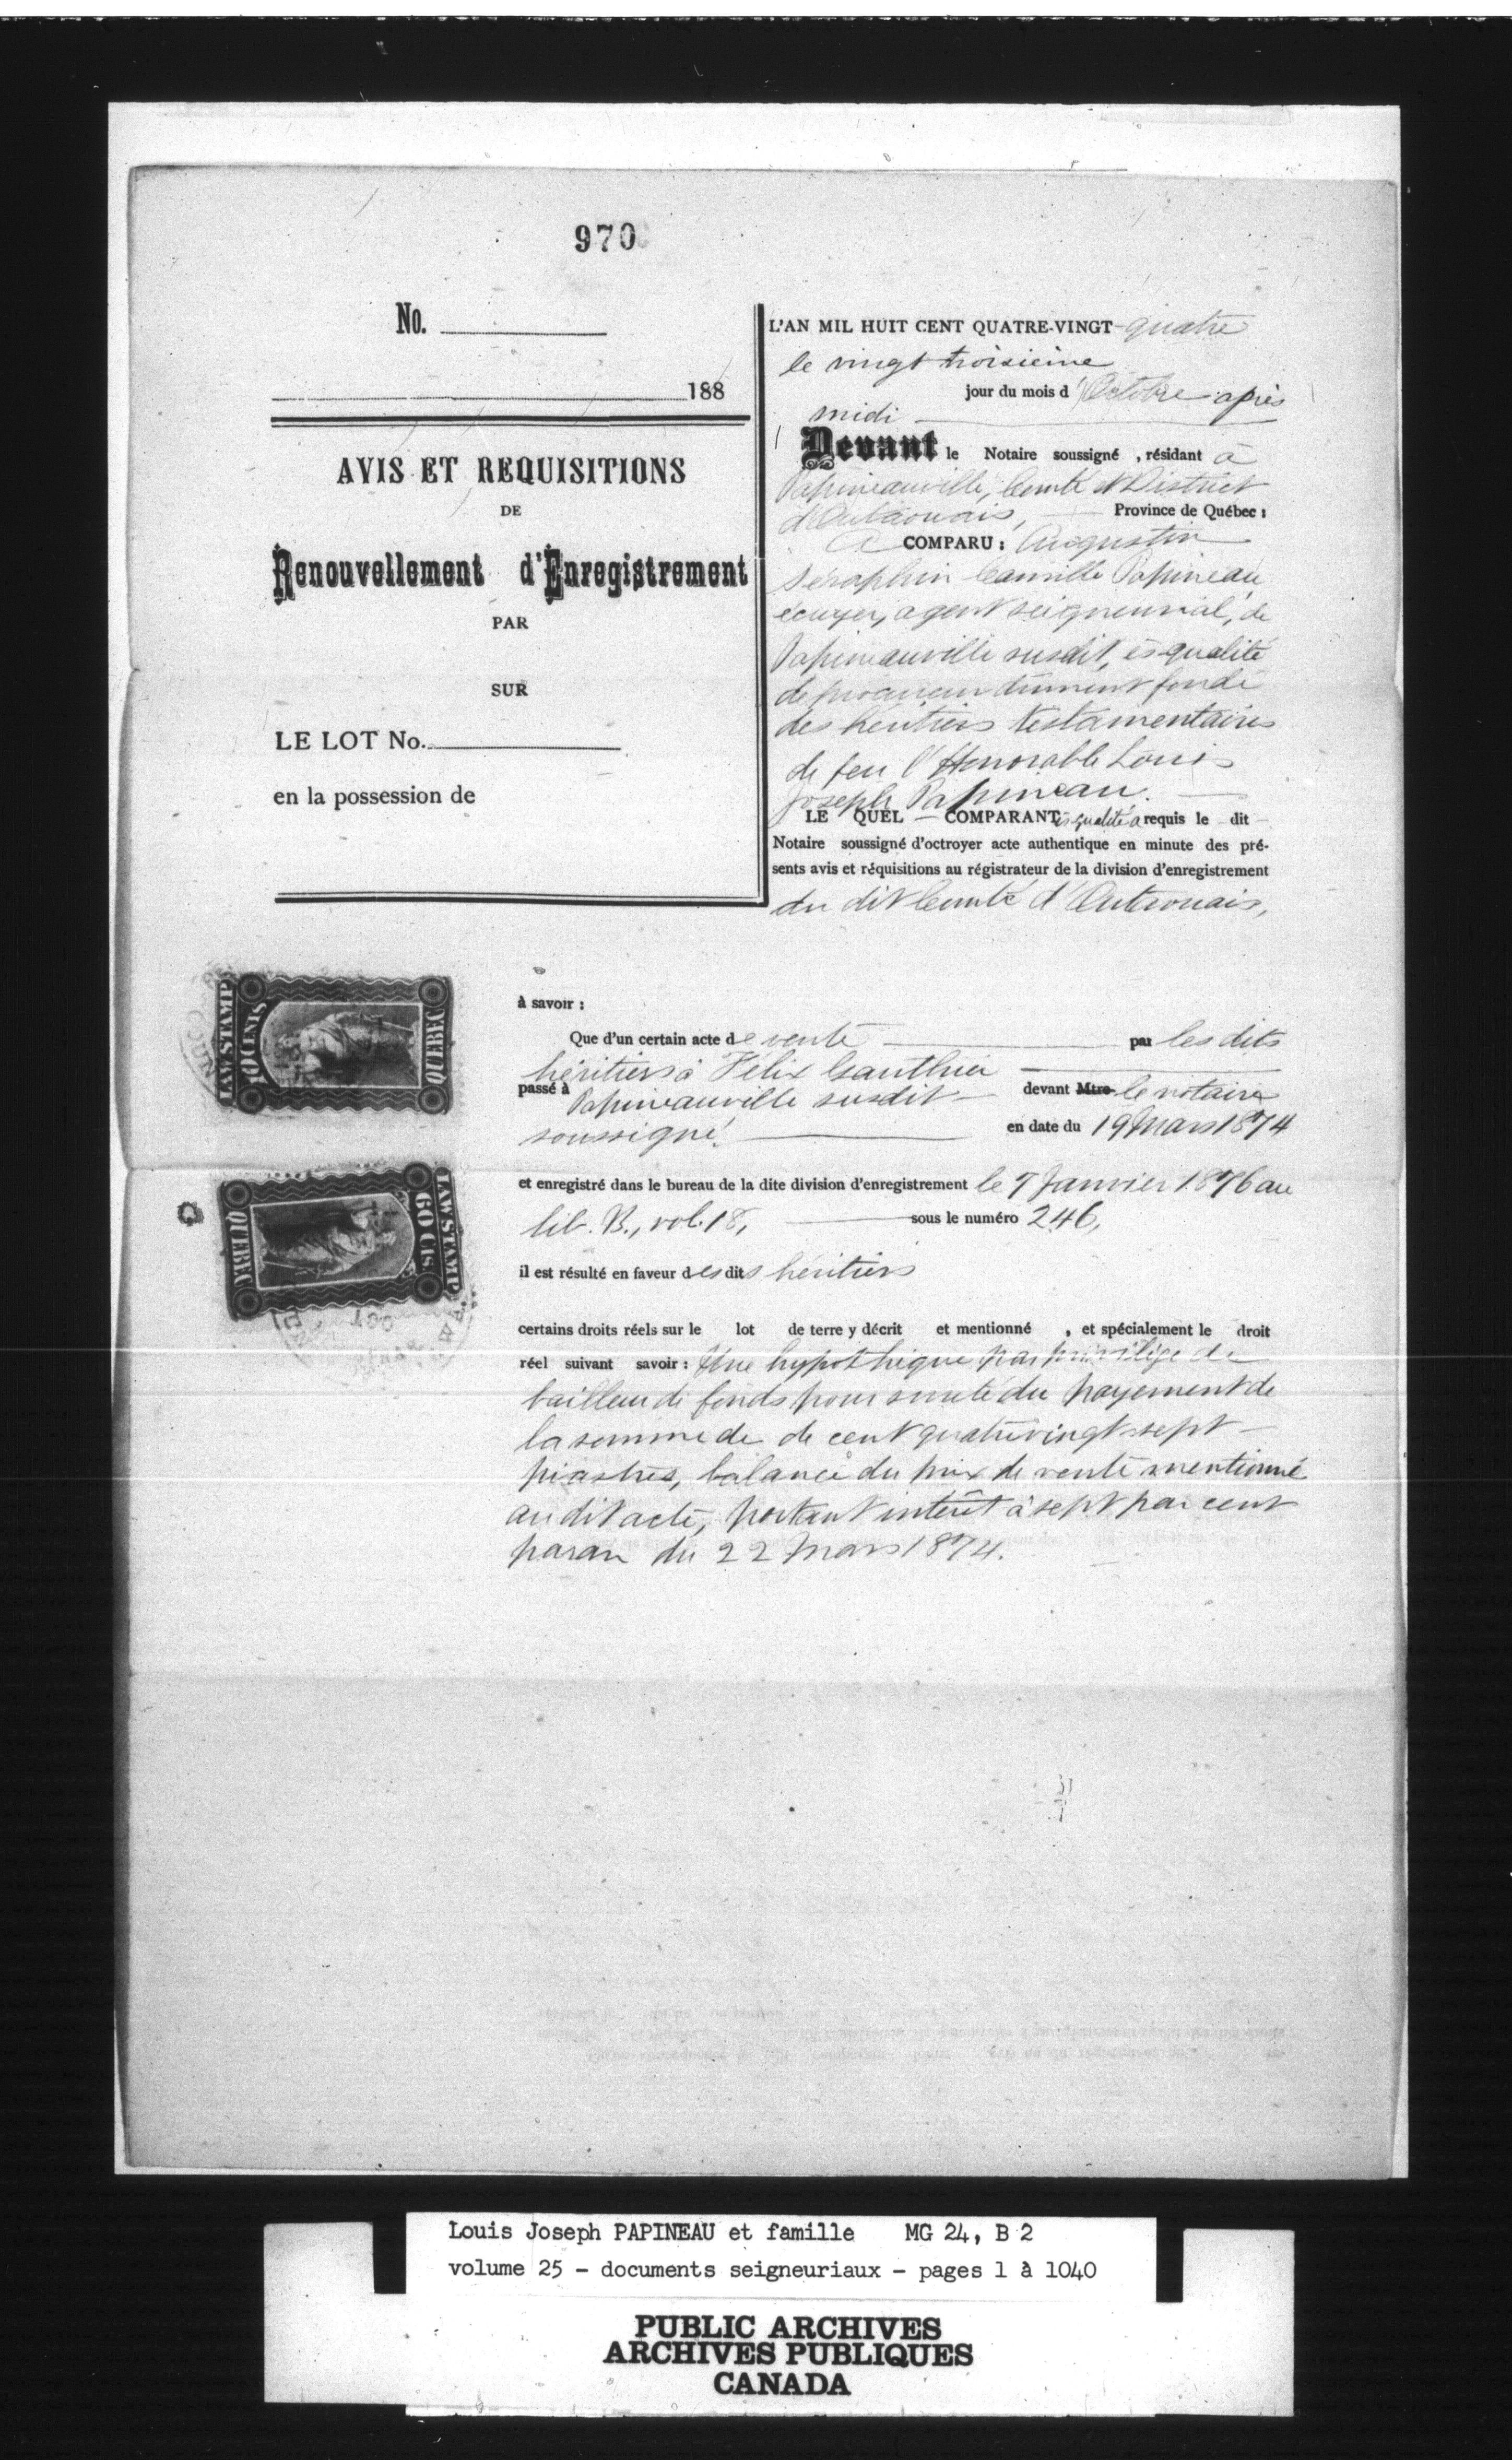 970
No.
188
AVIS ET REQUISITIONS
DE
Renouvellement d'Enregistrement
PAR
SUR
LE LOT No.
en la possession de
L'AN MIL HUIT CENT QUATRE-VINGT-quatre
le vingt troisieme
jour du mois d'Octobre après
midi
Devant le Notaire soussigné, résidant à
Papineauville, Comté et District
d'Outaouais, Province de Québec :
A COMPARU : Augustin
Séraphin Camille Papineau
écuyer, agent seigneurial, de
Papineauville susdit, ès-qualité
de procureur dûment fondé
des héritiers testamentaires
de feu l'Honorable Louis
Joseph Papineau.
LE QUEL COMPARANT ès qualité a requis le dit
Notaire soussigné d'octroyer acte authentique en minute des pré-
sents avis et réquisitions au régistrateur de la division d'enregistrement
du dit Comté d'Outaouais,
à savoir :
Que d'un certain acte de vente par les dits
héritiers à Félix Gauthier
passé à Papineauville susdit devant Mtre le notaire
soussigné. en date du 19 Mars 1874
et enregistré dans le bureau de la dite division d'enregistrement le 7 Janvier 1876 au
lib. B., vol. 18, sous le numéro 246,
il est résulté en faveur des dits héritiers
certains droits réels sur le lot de terre y décrit et mentionné , et spécialement le droit
réel suivant savoir : Une hypothèque par privilège de
bailleur de fonds pour sureté du payement de
la somme de de cent quatrevingt-sept
piastres, balance du prix de vente mentionné
au dit acte, portant intérêt à sept par cent
par an du 22 Mars 1874.
LAW STAMP
10 CENTS
QUEBEC
LAW STAMP
60 CTS
QUEBEC
OCT
Louis Joseph PAPINEAU et famille MG 24, B 2
volume 25 - documents seigneuriaux - pages 1 à 1040
PUBLIC ARCHIVES
ARCHIVES PUBLIQUES
CANADA